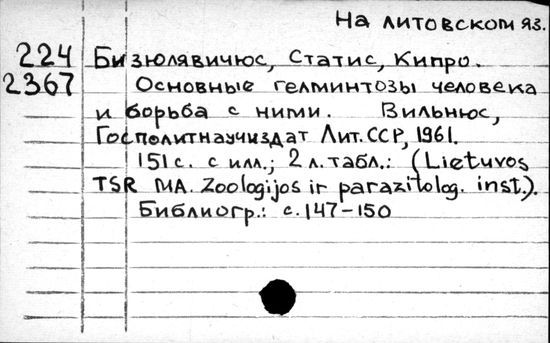 На литовском яз.
224 Бизюлявичюс, Статис, Кипро.
2367 Основные гелминтозы человека
и борьба с ними. Вильнюс,
Госполитнаучиздат Лит.ССР, 1961.
151 с. с илл.; 2 л. табл.: (Lietuvos
TSR MA. Zoologijos ir parazitolog. inst.).
Библиогр.: с. 147-150